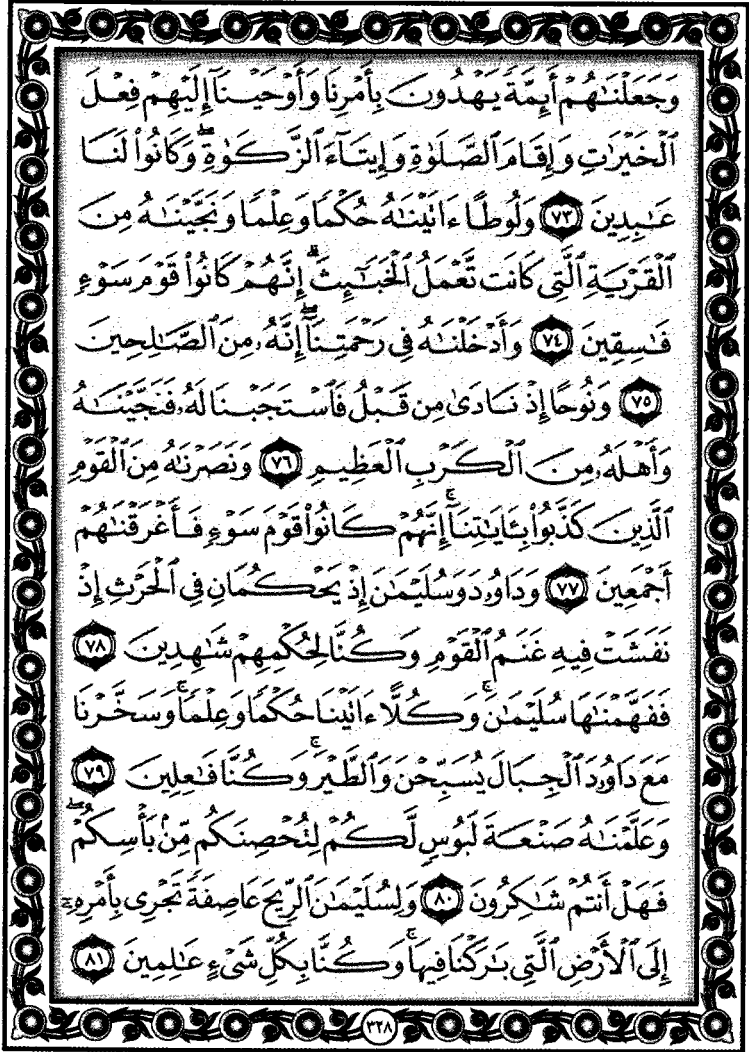 وَجَعَلْنَٰهُمْ أَئِمَّةً يَهْدُونَ بِأَمْرِنَا وَأَوْحَيْنَآ إِلَيْهِمْ فِعْلَ
ٱلْخَيْرَٰتِ وَإِقَامَ ٱلصَّلَوٰةِ وَإِيتَآءَ ٱلزَّكَوٰةِ ۖ وَكَانُوا۟ لَنَا
عَٰبِدِينَ ٧٣ وَلُوطًا ءَاتَيْنَٰهُ حُكْمًا وَعِلْمًا وَنَجَّيْنَٰهُ مِنَ
ٱلْقَرْيَةِ ٱلَّتِى كَانَت تَّعْمَلُ ٱلْخَبَٰٓئِثَ ۗ إِنَّهُمْ كَانُوا۟ قَوْمَ سَوْءٍ
فَٰسِقِينَ ٧٤ وَأَدْخَلْنَٰهُ فِى رَحْمَتِنَآ ۖ إِنَّهُۥ مِنَ ٱلصَّٰلِحِينَ
٧٥ وَنُوحًا إِذْ نَادَىٰ مِن قَبْلُ فَٱسْتَجَبْنَا لَهُۥ فَنَجَّيْنَٰهُ
وَأَهْلَهُۥ مِنَ ٱلْكَرْبِ ٱلْعَظِيمِ ٧٦ وَنَصَرْنَٰهُ مِنَ ٱلْقَوْمِ
ٱلَّذِينَ كَذَّبُوا۟ بِـَٔايَٰتِنَآ ۚ إِنَّهُمْ كَانُوا۟ قَوْمَ سَوْءٍ فَأَغْرَقْنَٰهُمْ
أَجْمَعِينَ ٧٧ وَدَاوُۥدَ وَسُلَيْمَٰنَ إِذْ يَحْكُمَانِ فِى ٱلْحَرْثِ إِذْ
نَفَشَتْ فِيهِ غَنَمُ ٱلْقَوْمِ وَكُنَّا لِحُكْمِهِمْ شَٰهِدِينَ ٧٨
فَفَهَّمْنَٰهَا سُلَيْمَٰنَ ۚ وَكُلًّا ءَاتَيْنَا حُكْمًا وَعِلْمًا ۚ وَسَخَّرْنَا
مَعَ دَاوُۥدَ ٱلْجِبَالَ يُسَبِّحْنَ وَٱلطَّيْرَ ۚ وَكُنَّا فَٰعِلِينَ ٧٩
وَعَلَّمْنَٰهُ صَنْعَةَ لَبُوسٍ لَّكُمْ لِتُحْصِنَكُم مِّنۢ بَأْسِكُمْ ۖ
فَهَلْ أَنتُمْ شَٰكِرُونَ ٨٠ وَلِسُلَيْمَٰنَ ٱلرِّيحَ عَاصِفَةً تَجْرِى بِأَمْرِهِۦٓ
إِلَى ٱلْأَرْضِ ٱلَّتِى بَٰرَكْنَا فِيهَا ۚ وَكُنَّا بِكُلِّ شَىْءٍ عَٰلِمِينَ ٨١
٣٢٨